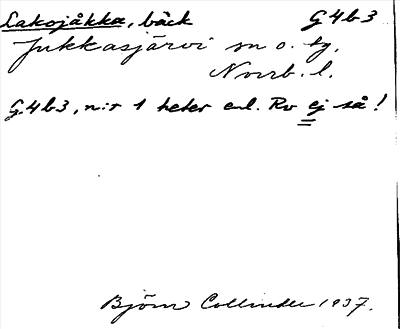 Lakojåkka, bäck G4b3
Jukkasjärvi sn o. tg.
Norrb. l.
G4b3, n:r 1 heter enl. Rv ej så!
Björn Collinder 1937.